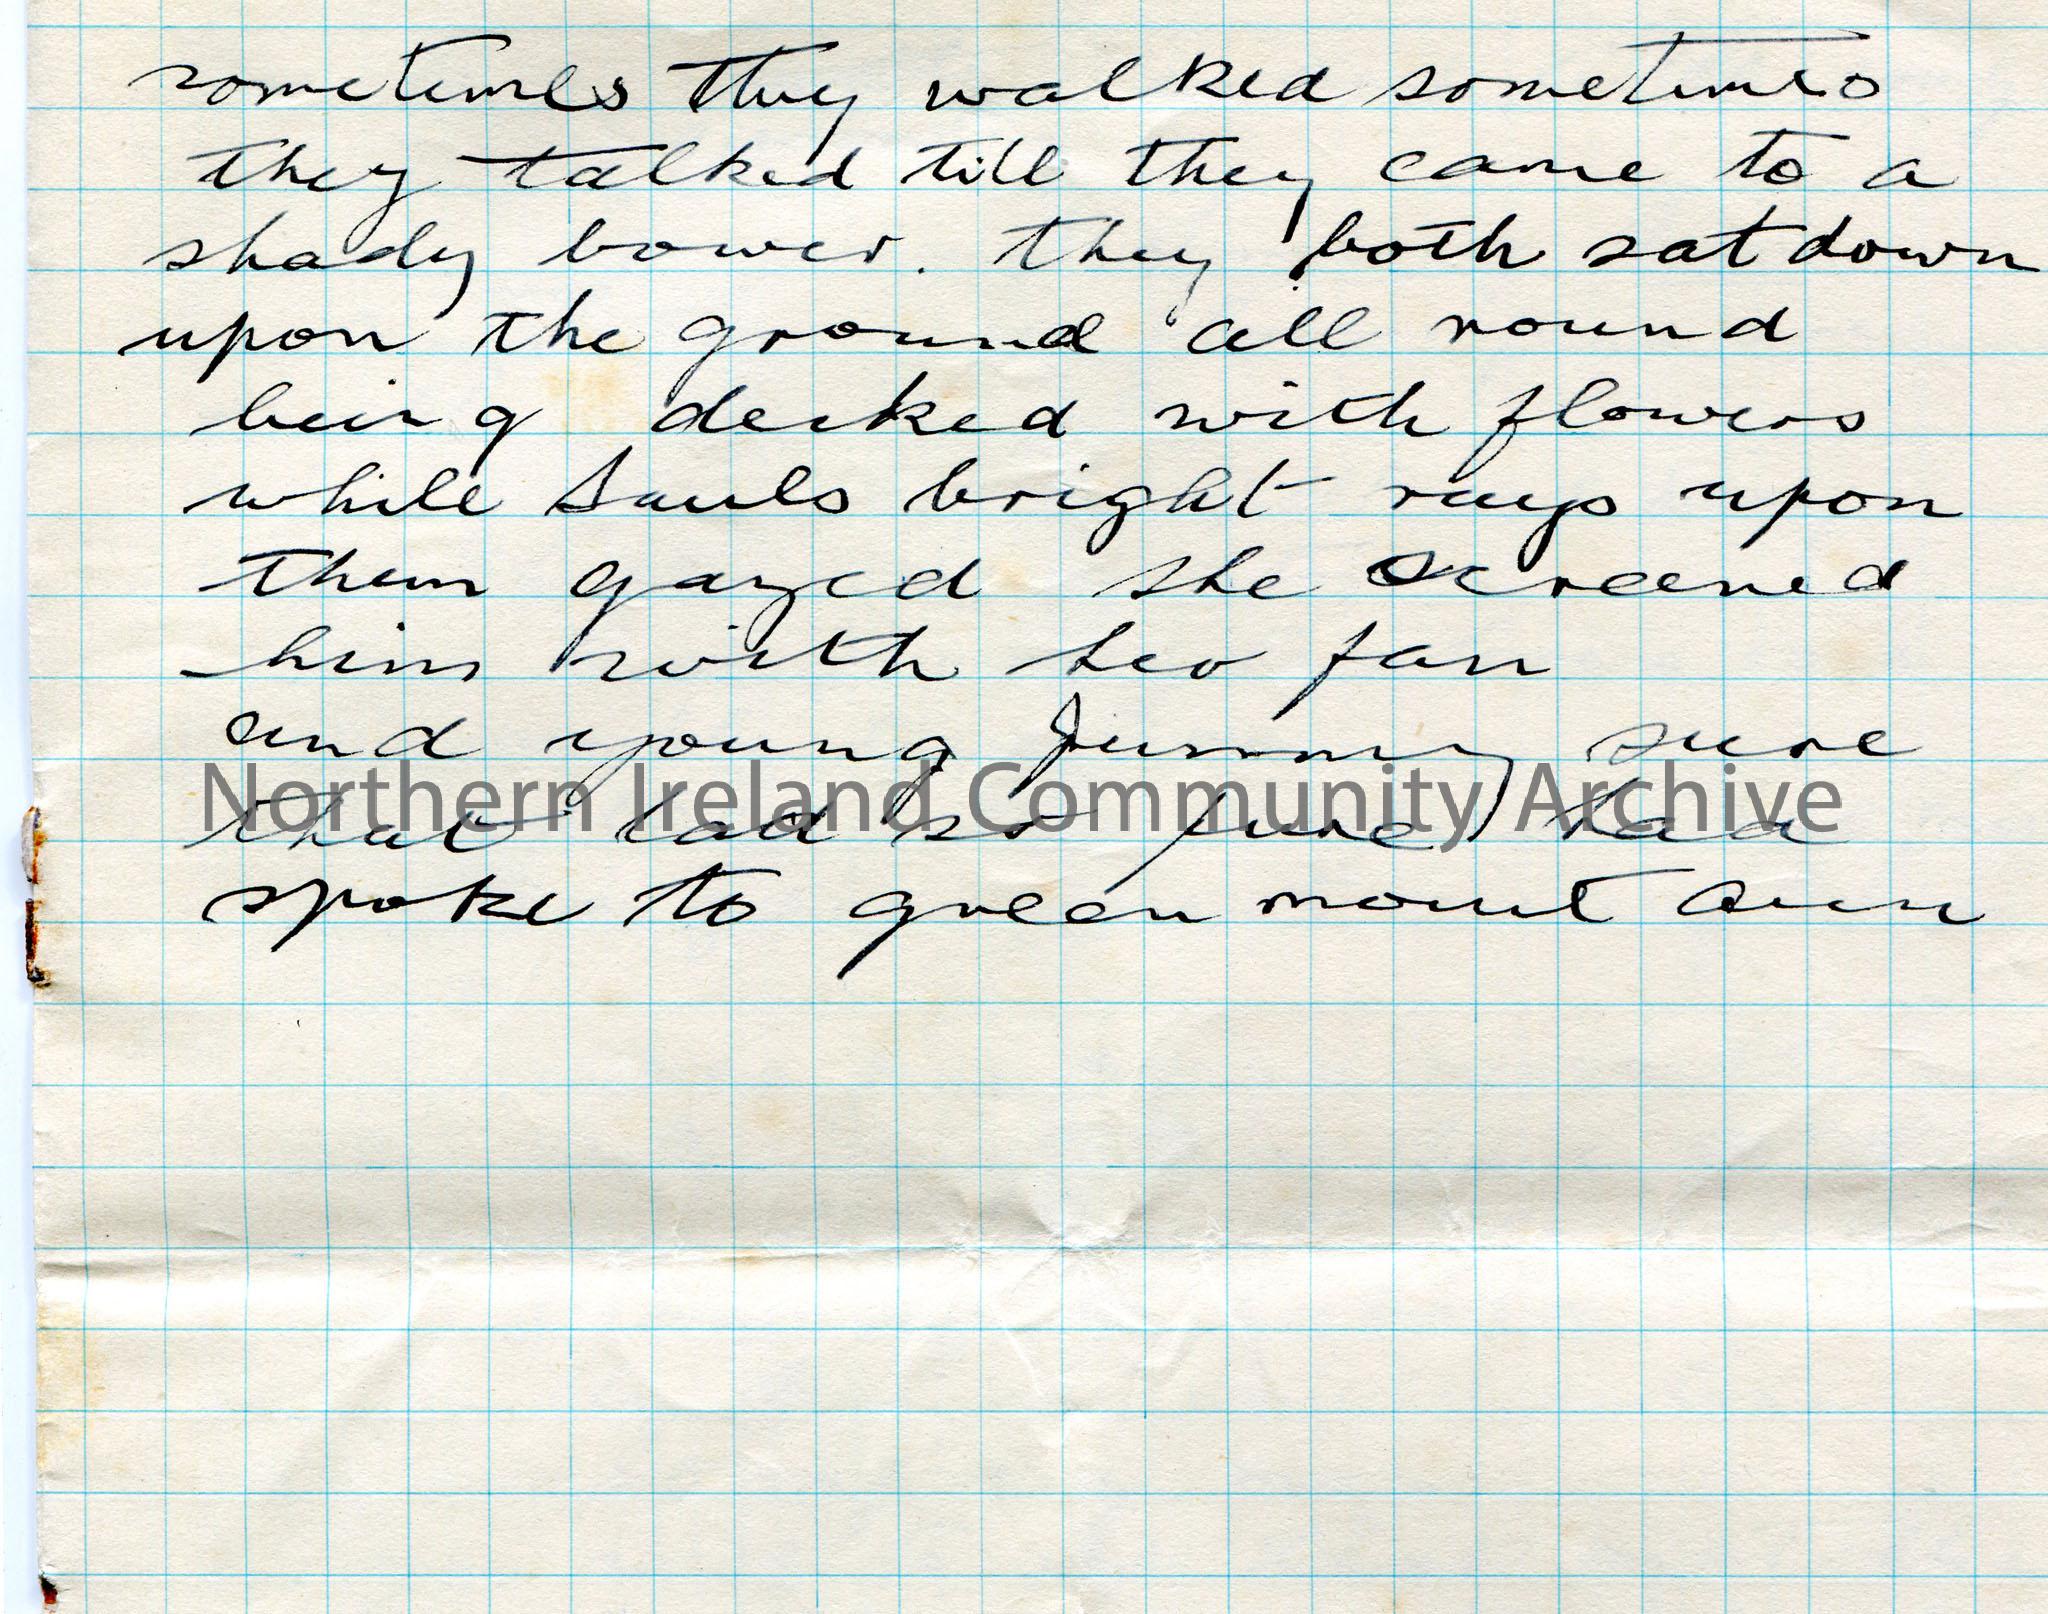 sometimes they walked sometimes
they talked till they came to a
shady bower. they both sat down
upon the ground all round
being decked with flowers
while Sauls bright rays upon
them gazed she screened
him with her fan
and young Jimmy sure
Northern Ireland Community Archive
that lad so pure had
spoke to green mount Ann